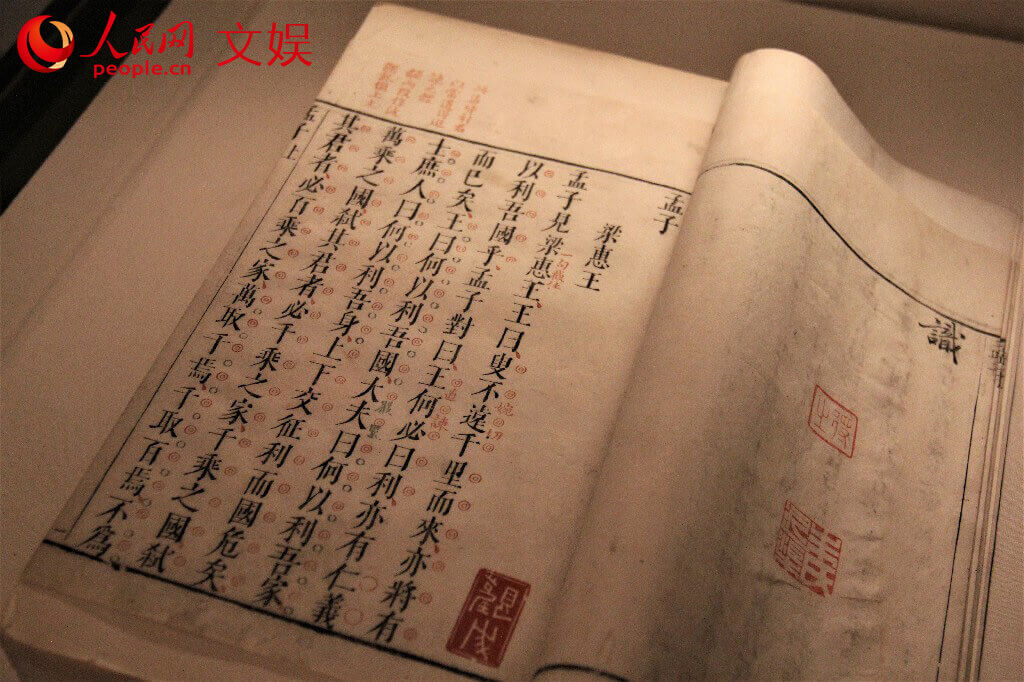 人民网 文娱
people.cn
識
孟子
梁惠王
孟子見梁惠王王曰叟不遠千里而來亦將有
以利吾國乎孟子對曰王何必曰利亦有仁義
而已矣王曰何以利吾國大夫曰何以利吾家
士庶人曰何以利吾身上下交征利而國危矣
萬乘之國弒其君者必千乘之家千乘之國弒
其君者必百乘之家萬取千焉千取百焉不爲
孟子上